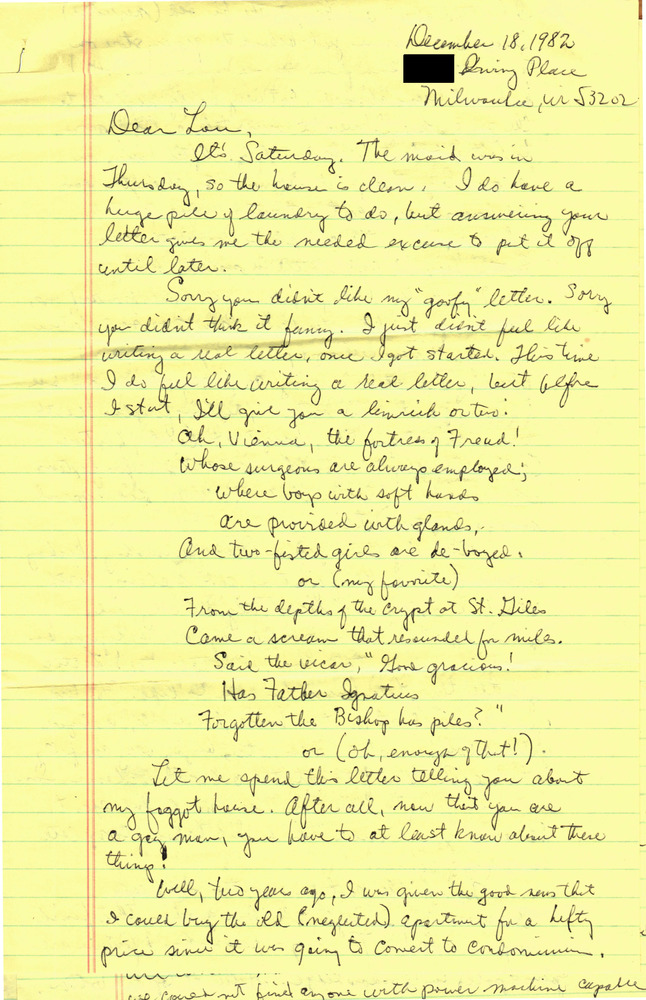 December 18, 1982
Irving Place
Milwaukee, WI 53202
Dear Lou,
It's Saturday. The maid was in
Thursday, so the house is clean. I do have a
huge pile of laundry to do, but answering your
letter gives me the needed excuse to put it off
until later.
Sorry you didn't like my "goofy" letter. Sorry
you didn't think it funny. I just didn't feel like
writing a real letter, once I got started. This time
I do feel like writing a real letter, but before
I start, I'll give you a limrick or two:
Oh, Vienna, the fortress of Freud!
Whose surgeons are always employed;
where boys with soft hands
are provided with glands,
And two-fisted girls are de-boyed.
or (my favorite)
From the depths of the crypt at St. Giles
Came a scream that resounded for miles.
Said the vicar, "Good gracious!
Has Father Ignatius
Forgotten the Bishop has piles?"
or (oh, enough of that!).
Let me spend this letter telling you about
my faggot house. After all, now that you are
a gay man, you have to at least know about these
things!
Well, two years ago, I was given the good news that
I could buy the old (neglected) apartment for a hefty
price since it was going to convert to condominium.
we could not find anyone with power machine capable